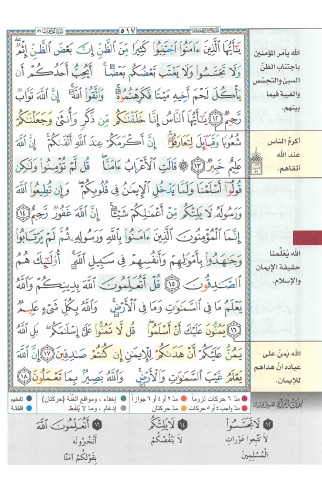 ٥١٧
يَٰٓأَيُّهَا ٱلَّذِينَ ءَامَنُوا۟ ٱجْتَنِبُوا۟ كَثِيرًا مِّنَ ٱلظَّنِّ إِنَّ بَعْضَ ٱلظَّنِّ إِثْمٌ
وَلَا تَجَسَّسُوا۟ وَلَا يَغْتَب بَّعْضُكُم بَعْضًا أَيُحِبُّ أَحَدُكُمْ أَن
يَأْكُلَ لَحْمَ أَخِيهِ مَيْتًا فَكَرِهْتُمُوهُ وَٱتَّقُوا۟ ٱللَّهَ إِنَّ ٱللَّهَ تَوَّابٌ
رَّحِيمٌ ١٢ يَٰٓأَيُّهَا ٱلنَّاسُ إِنَّا خَلَقْنَٰكُم مِّن ذَكَرٍ وَأُنثَىٰ وَجَعَلْنَٰكُمْ
شُعُوبًا وَقَبَآئِلَ لِتَعَارَفُوٓا۟ إِنَّ أَكْرَمَكُمْ عِندَ ٱللَّهِ أَتْقَىٰكُمْ إِنَّ ٱللَّهَ
عَلِيمٌ خَبِيرٌ ١٣ قَالَتِ ٱلْأَعْرَابُ ءَامَنَّا قُل لَّمْ تُؤْمِنُوا۟ وَلَٰكِن
قُولُوٓا۟ أَسْلَمْنَا وَلَمَّا يَدْخُلِ ٱلْإِيمَٰنُ فِى قُلُوبِكُمْ وَإِن تُطِيعُوا۟ ٱللَّهَ
وَرَسُولَهُۥ لَا يَلِتْكُم مِّنْ أَعْمَٰلِكُمْ شَيْـًٔا إِنَّ ٱللَّهَ غَفُورٌ رَّحِيمٌ ١٤
إِنَّمَا ٱلْمُؤْمِنُونَ ٱلَّذِينَ ءَامَنُوا۟ بِٱللَّهِ وَرَسُولِهِۦ ثُمَّ لَمْ يَرْتَابُوا۟
وَجَٰهَدُوا۟ بِأَمْوَٰلِهِمْ وَأَنفُسِهِمْ فِى سَبِيلِ ٱللَّهِ أُو۟لَٰٓئِكَ هُمُ
ٱلصَّٰدِقُونَ ١٥ قُلْ أَتُعَلِّمُونَ ٱللَّهَ بِدِينِكُمْ وَٱللَّهُ
يَعْلَمُ مَا فِى ٱلسَّمَٰوَٰتِ وَمَا فِى ٱلْأَرْضِ وَٱللَّهُ بِكُلِّ شَىْءٍ عَلِيمٌ
١٦ يَمُنُّونَ عَلَيْكَ أَنْ أَسْلَمُوا۟ قُل لَّا تَمُنُّوا۟ عَلَىَّ إِسْلَٰمَكُم بَلِ ٱللَّهُ
يَمُنُّ عَلَيْكُمْ أَنْ هَدَىٰكُمْ لِلْإِيمَٰنِ إِن كُنتُمْ صَٰدِقِينَ ١٧ إِنَّ ٱللَّهَ
يَعْلَمُ غَيْبَ ٱلسَّمَٰوَٰتِ وَٱلْأَرْضِ وَٱللَّهُ بَصِيرٌۢ بِمَا تَعْمَلُونَ ١٨
الله يأمر المؤمنين
باجتناب الظنّ
السيئ والتجسّس
والغيبة فيما
بينهم.
أكرمُ الناس
عند الله
أتقاهم.
الله يُعَلّمنا
حقيقة الإيمان
والإسلام.
الله يمنّ على
عباده أنْ هداهم
للإيمان.
مدّ ٦ حركات لزوماً
مدّ ٢ أو ٤ أو ٦ جوازاً
إخفاء، ومواقع الغُنَّة (حركتان)
تفخيم
مدّ واجب ٤ أو ٥ حركات
مدّ حركتان
إدغام، وما لا يُلفَظ
قلقلة
١٢ لَا تَجَسَّسُوا
لَا تَتَّبِعُوا عَوْرَاتِ
الْمُسْلِمِينَ
١٤ لَا يَلِتْكُمْ
لَا يَنْقُصْكُمْ
١٦ أَتُعَلِّمُونَ اللَّهَ
أَتُخْبِرُونَهُ
بِقَوْلِكُمْ آمَنَّا